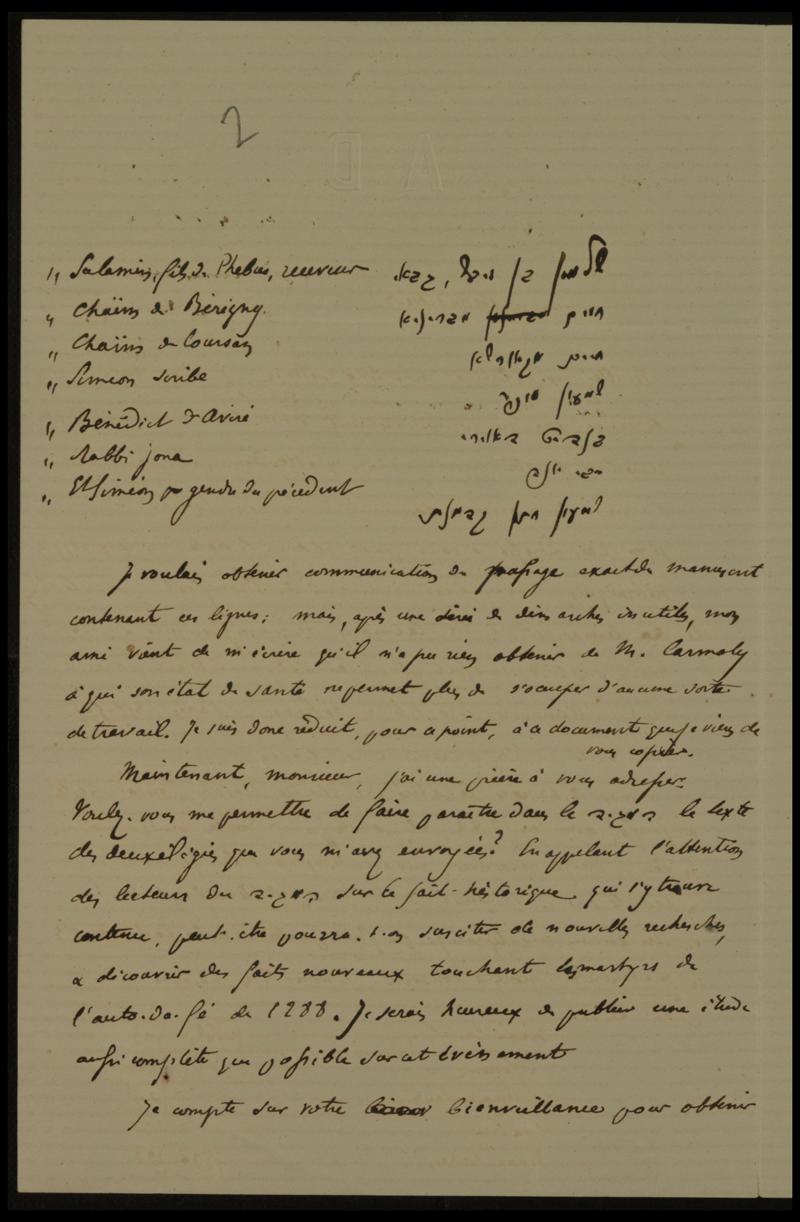 2
A D
" Salamin, fils de Phebus, receveur שלמין בן ויבש, גבאי
" Chaïm de Bérigny חיים מבריניא
" Chaïm de Coursan חיים
" Simeon scribe שמעון סופר
" Bénédict d'Aviré בנדיט דאוירי
" Rabbi Jona רבי יונה
" Et Siméon gendre du précédent שמעון חתן
Je voulais obtenir communication du passage exact du manuscrit
contenant ces lignes; mais, après une série de démarches inutiles, mon
ami vient de m'écrire qu'il n'a pu rien obtenir de M. Carmoly
à qui son état de santé ne permet plus de s'occuper d'aucune sorte
de travail. Je suis donc réduit, pour ce point, à ce document que je viens de
vous copier.
Maintenant, monsieur, j'ai une prière à vous adresser.
Voulez-vous me permettre de faire paraître dans le המגיד le texte
des deux élégies que vous m'avez envoyées? En appelant l'attention
des lecteurs du המגיד sur le fait historique qui s'y trouve
contenu, peut-être pourra-t-on susciter de nouvelles recherches,
à découvrir des faits nouveaux touchant les martyrs de
l'auto-da-fé de 1288. Je serais heureux de publier une étude
aussi complète que possible sur cet événement
Je compte sur votre bienveillance pour obtenir